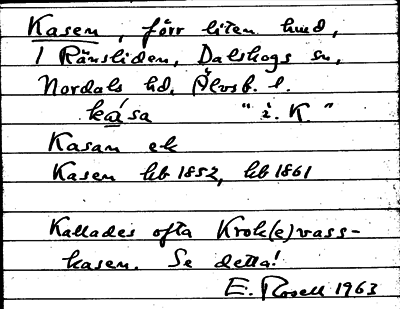 Kasen, förr liten hmd,
i Rånsliden, Dalskogs sn,
Nordals hd, Älvsb. l.
kása "i. K."
Kasan ek
Kasen hb 1852, hb 1861
Kallades ofta Krok(e)vass-
kasen. Se detta!
E. Rosell 1963